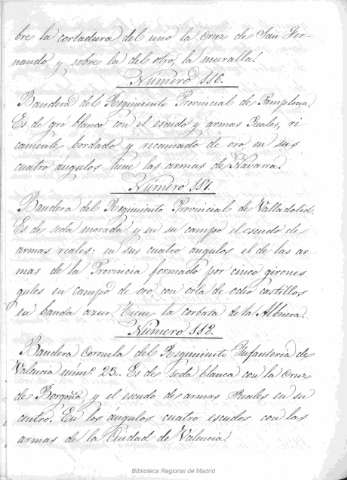 bre la cortadura del uno la Cruz de San Fer-
nando, y sobre la del otro, la muralla.
Número 116.
Bandera del Regimiento Provincial de Pamplona.
Es de gro blanco con el escudo y armas Reales, ri
camente bordado y recamado de oro, en sus
cuatro angulos tiene las armas de Navarra.
Número 117.
Bandera del Regimiento Provincial de Valladolid.
Es de seda morada y en su campo el escudo de
armas reales: en sus cuatro angulos el de las ar-
mas de la Provincia formado por cinco girones
gules en campo de oro, con orla de ocho castillos
en banda azur. Tiene la corbata de la Albuera.
Número 118.
Bandera Coronela del Regimiento Infantería de
Valencia núm.º 23. Es de seda blanca con la Cruz
de Borgoña y el escudo de armas Reales en su
centro. En los angulos cuatro escudos con las
armas de la Ciudad de Valencia.
Biblioteca Regional de Madrid